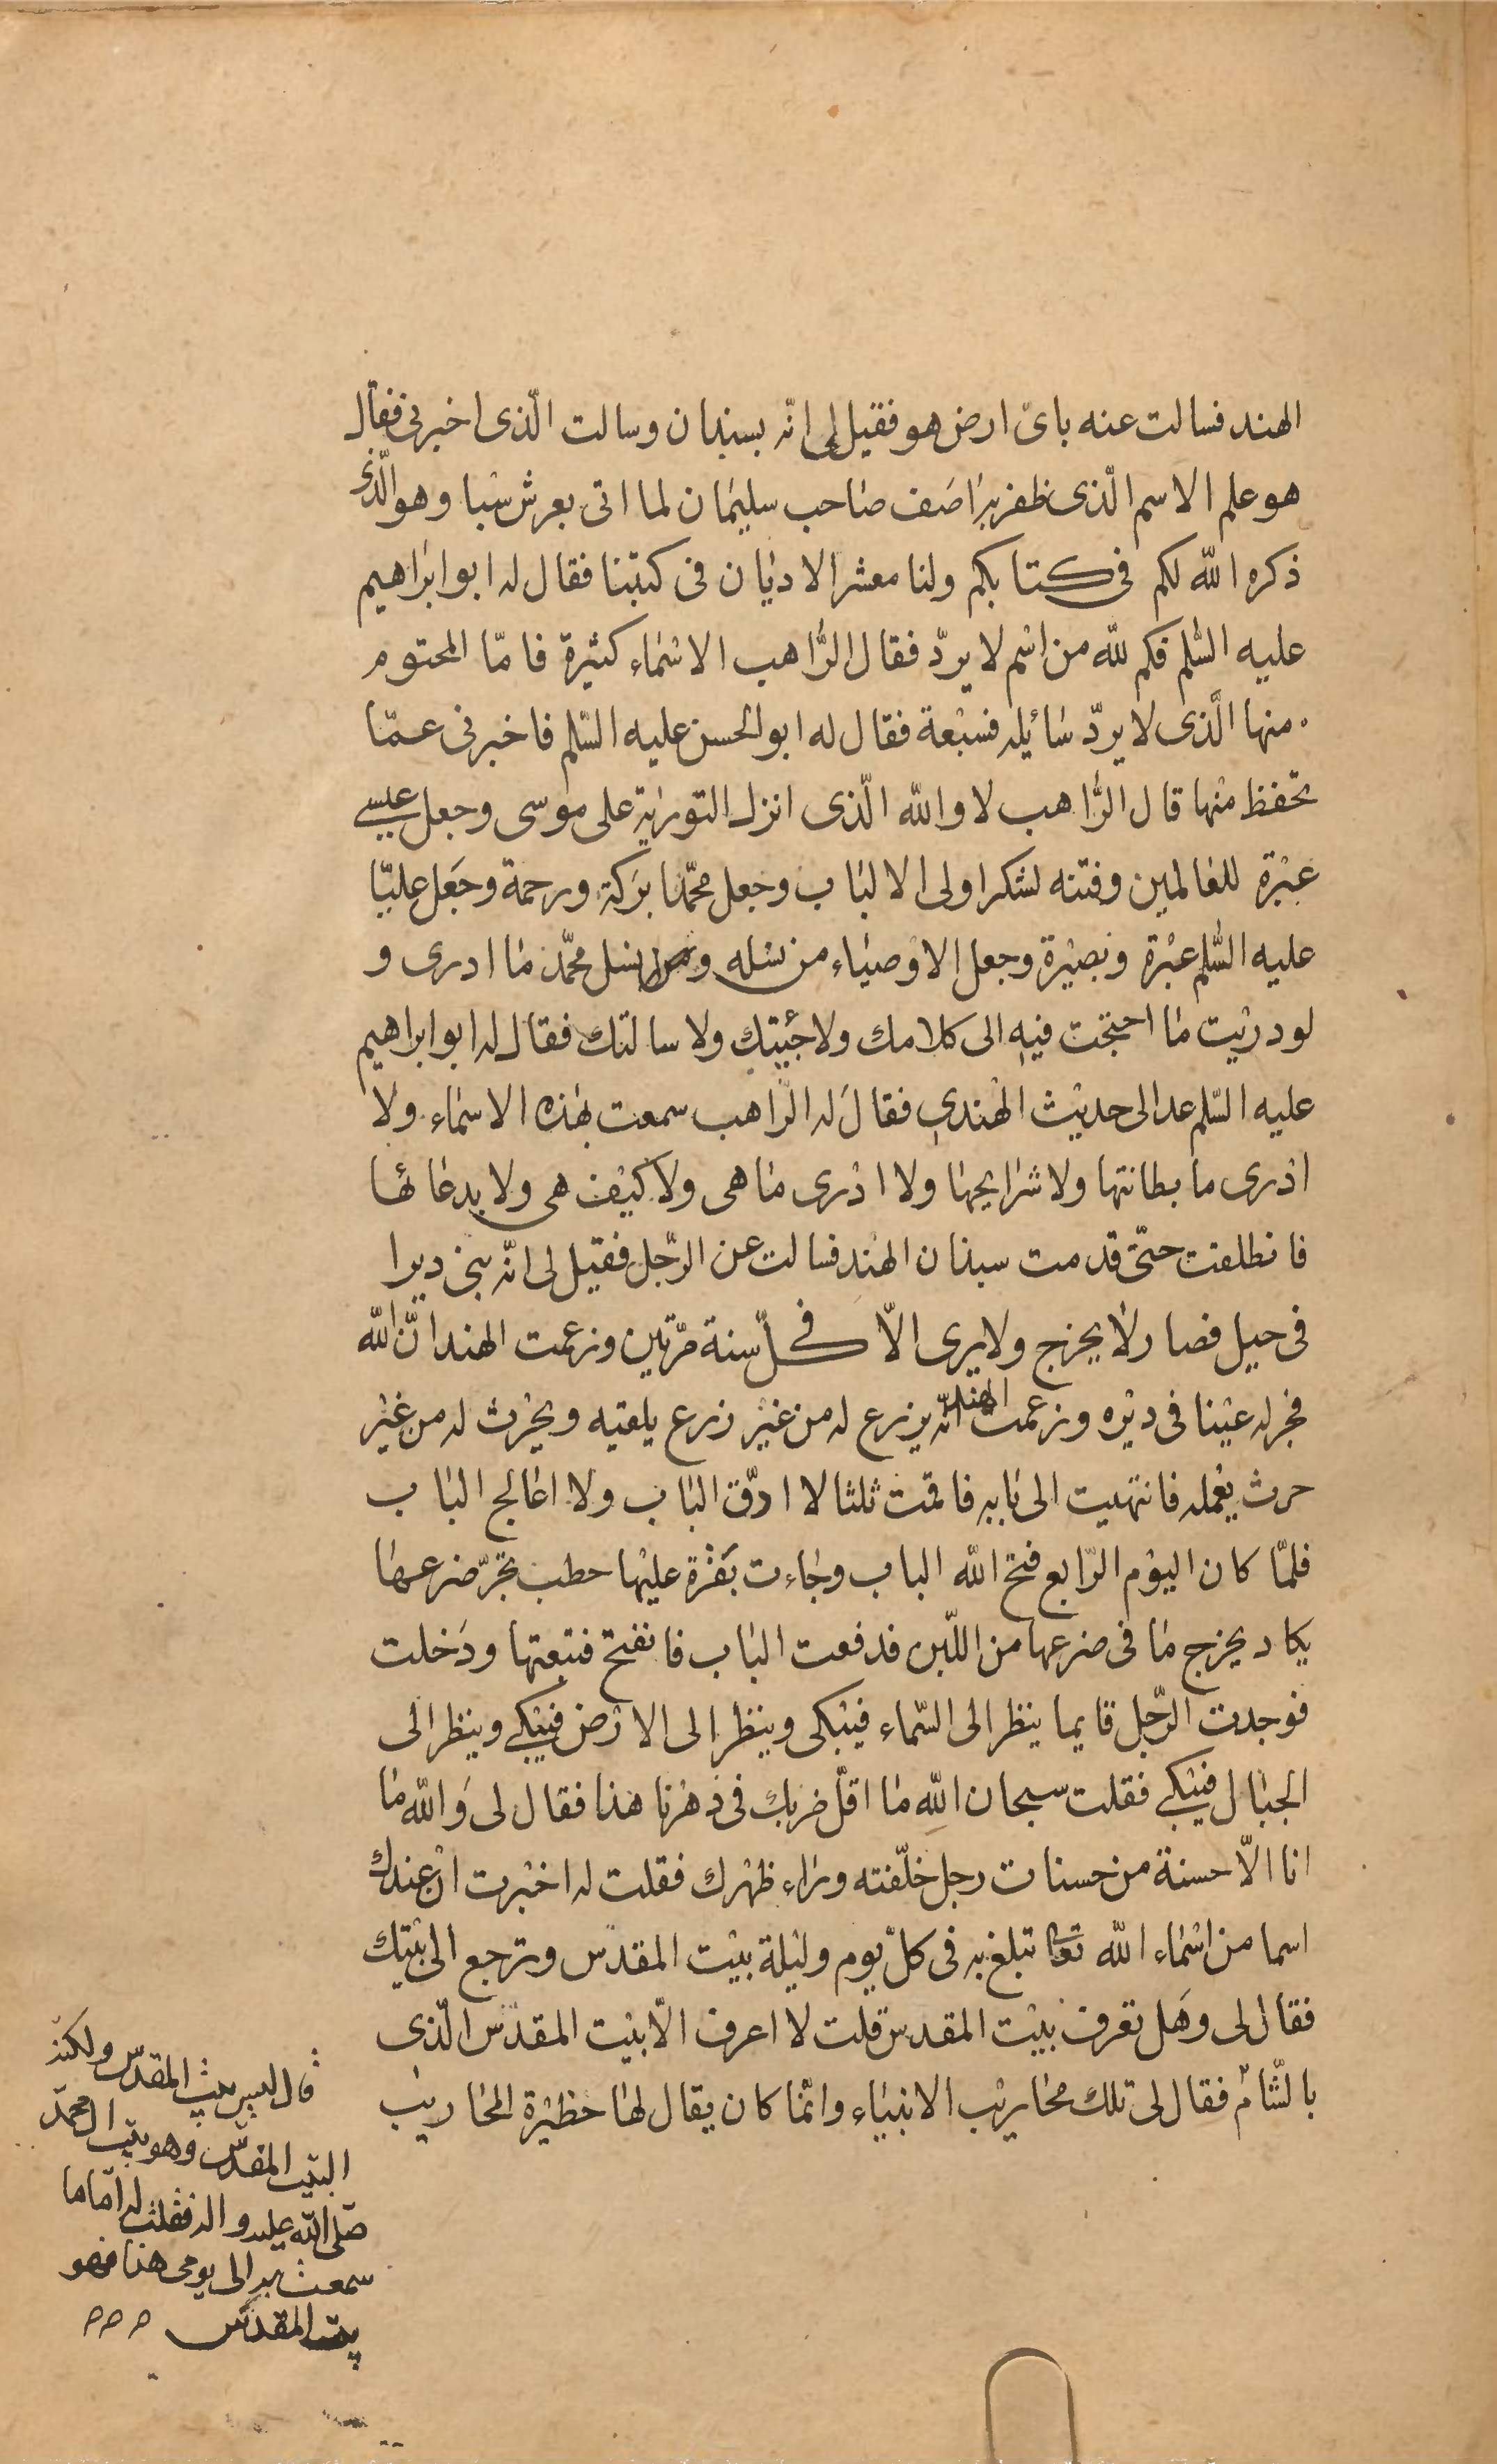 الهند فسالت عنه بائ ارض هو فقيل لى انّه بسبذان وسالت الّذى اخبرنى فقال
هو علم الاسم الّذى ظفر به اصَف صاحب سليمان لما اتى بعرش سَبا وهو الّذى
ذكره اللّه لكم فى كتابكم ولنا معشر الاديان فى كتبنا فقال له ابو ابراهيم
عليه السّلم فكم للّه من اسْم لا يردّ فقال الرّاهب الاسْماء كثيرة فامّا المحتوم
منها الّذى لا يردّ سَائِله فسَبْعة فقال له ابو الحسن عليه السّلم فاخبرنى عمّا
تحفظ منها قال الرّاهب لا واللّه الّذى انزل التورية على موسى وجعل عيسى
عبْرة للعالمين وفتنه لشكر اولى الالباب وجعل محمّدا بَركة ورحمة وجَعل عليّا
عليه السّلم عبْرة وبصيْرة وجعل الاوْصياء من نسْله ونسل محمّد ما ادرى و
لو دريْت ما احتجْت فيْهِ الى كلامك ولا جئيتك ولا سالتك فقال له ابو ابراهيم
عليه السّلم عد الى حديْث الهْندى فقال له الرّاهب سمعت بهذه الاسماء ولا
ادْرى ما بطانتها ولا شرايحها ولا ادْرى ما هى ولا كيْف هى ولا بدعائها
فانطلقت حتّى قدمت سبذان الهنْد فسالت عن الرّجل فقيل لى انّه بنى ديرا
فى جبل فصار لا يخرج ولا يرى الّا فى كلّ سنة مرّتين وزعمت الهند انّ اللّه
فجر له عيْنا فى ديْره وزعمت الهند انّه يزرع له من غيْر زرع يلقيه ويحْرث له من غيْر
حرث يعْمله فانتهيت الى بابه فاقمت ثلثا لا ادّق الباب ولا اعالج الباب
فلمّا كان اليوْم الرّابع فتح اللّه الباب وجاءت بَقرْة عليْها حطب تجرّ ضرعها
يكاد يخرج ما فى ضرعها من اللّبن فدفعت الباب فانفتح فتبعتها ودَخلت
فوجدت الرّجل قايما ينظر الى السّماء فيبْكى وينظر الى الارْض فيبْكى وينظر الى
الجبال فيبْكى فقلت سبحان اللّه ما اقلّ ضربك فى دهْرنا هذا فقال لى وَاللّه ما
انا الّا حسنة من حسنات رجل خلّفته وراء ظهْرك فقلت له اخبْرت انّ عندك
اسما من اسْماء اللّه تعا تبلغ به فى كلّ يوم وليْلة بيْت المقدس وترجع الى بيْتك
فقال لى وهَل تعرف بيْت المقدس قلت لا اعرف الّا بيْت المقدس الّذى
بالشّام فقال لى تلك محاريْب الانبْياء وانّما كان يقال لها حظيْرة المحاريب
قال ليس بيت المقدس ولكنّه
البيت المقدّس وهو بيت ال محمّد
صلّى اللّه عليه واله فقلت له امّا ما
سمعت به الى يومى هذا فهو
بيت المقدس